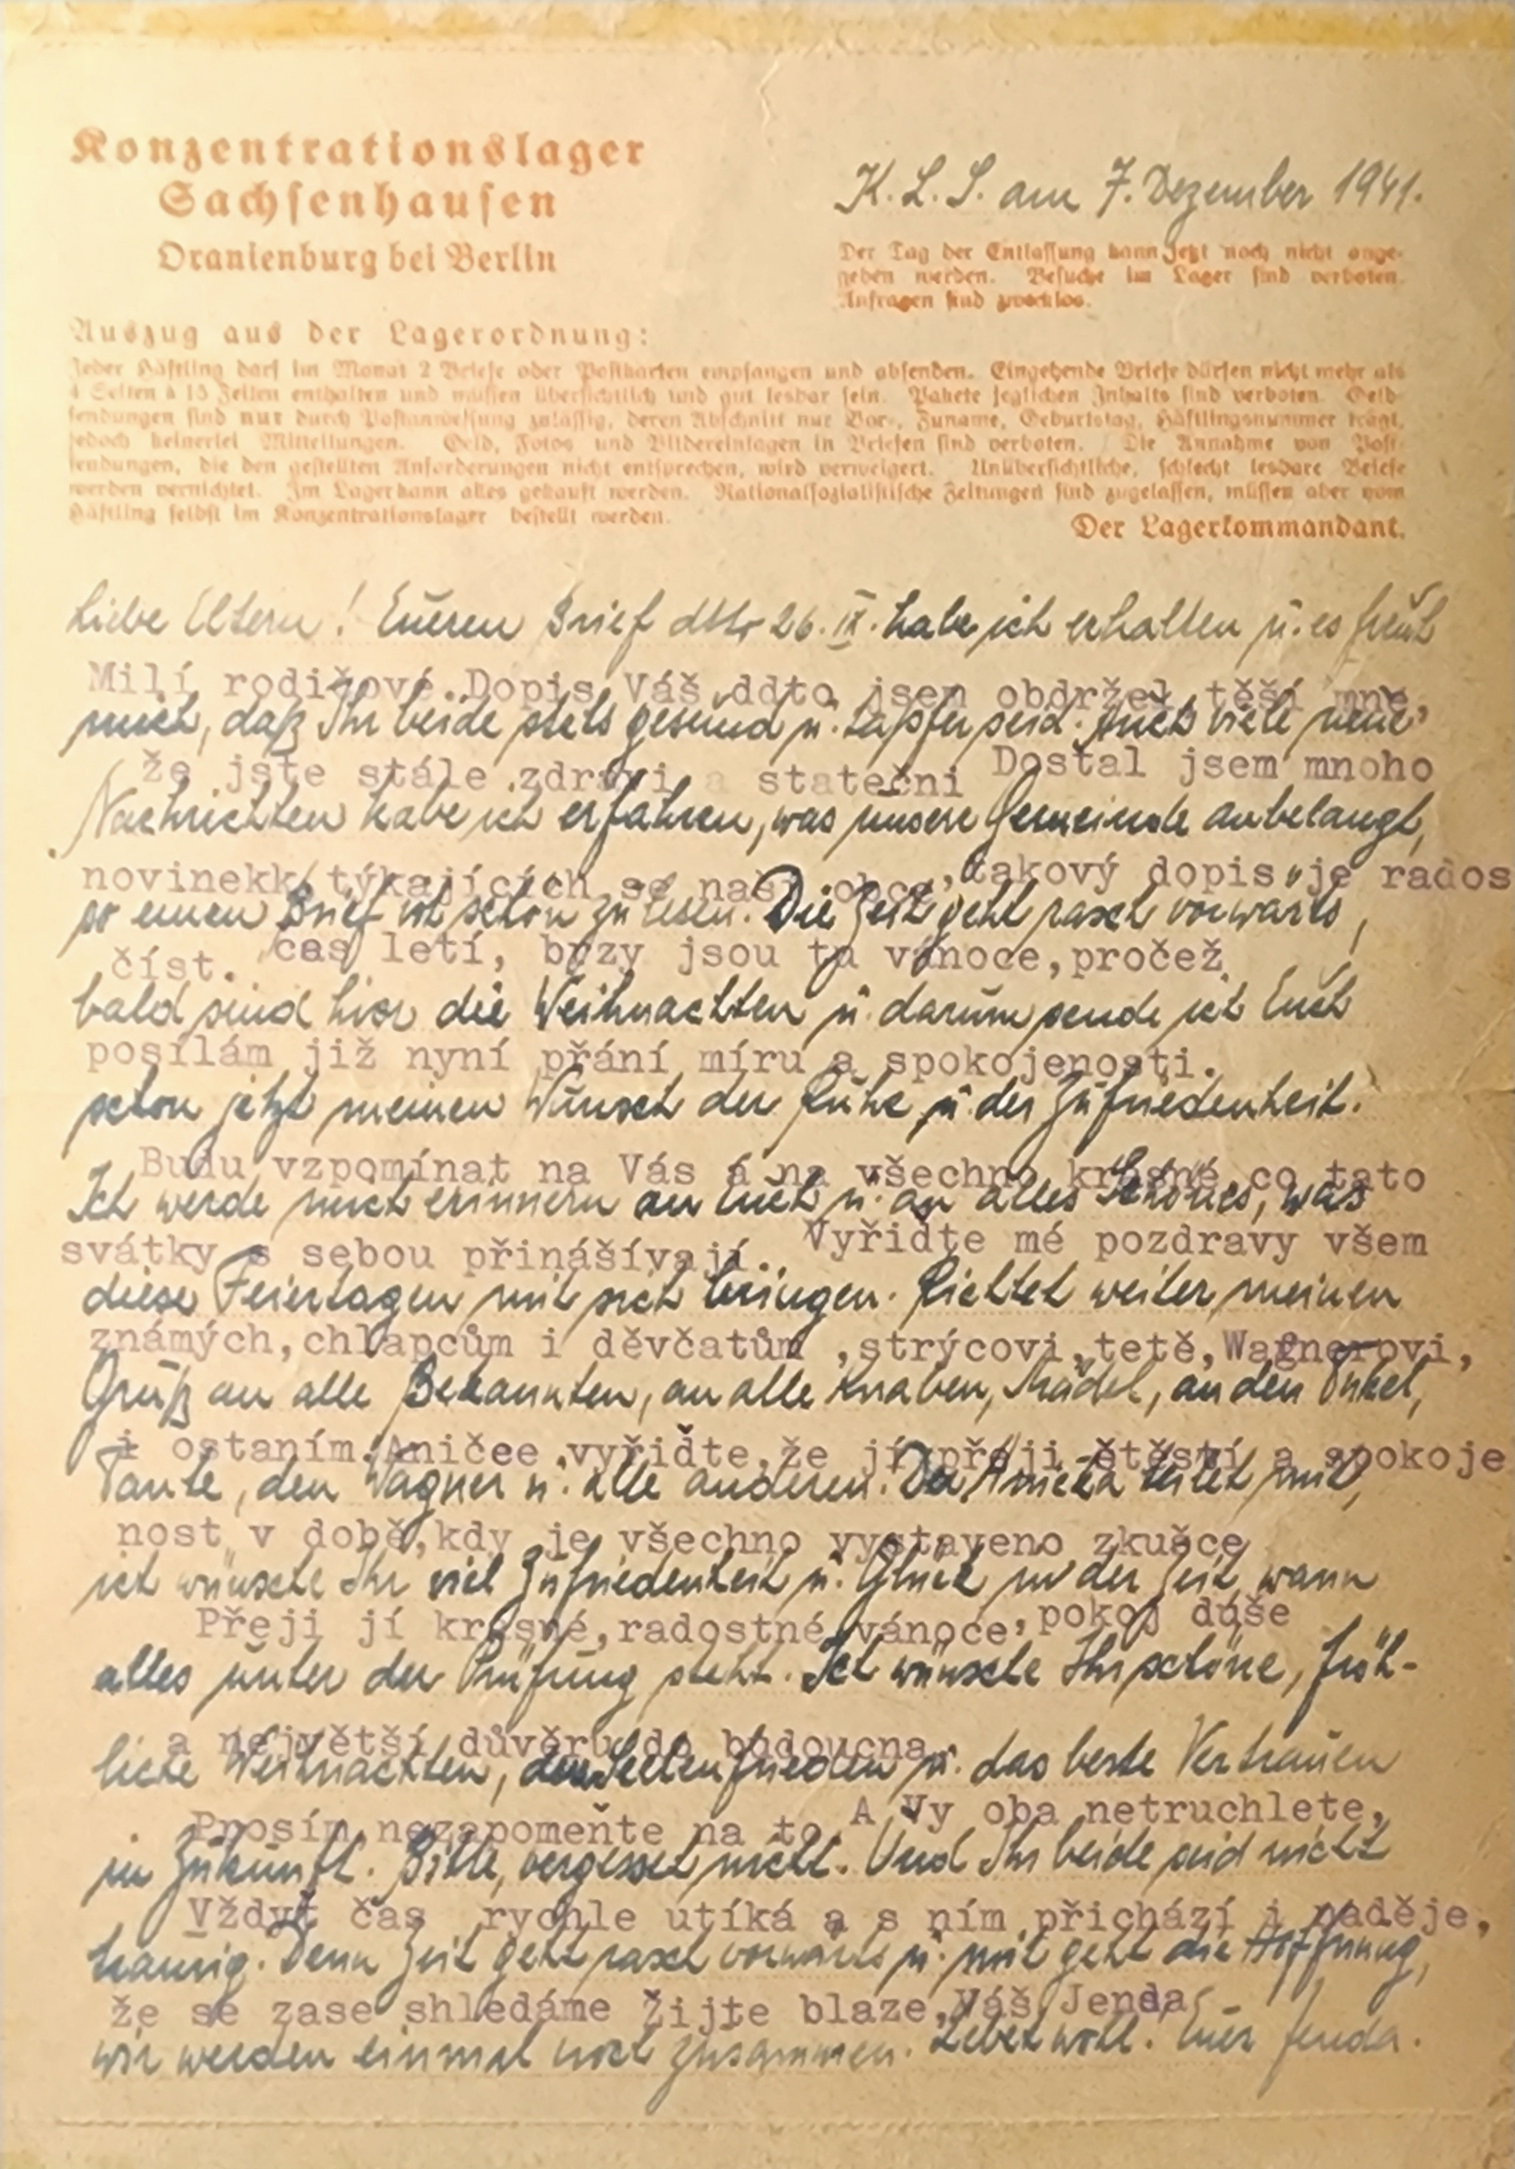 Konzentrationslager
Sachsenhausen
Oranienburg bei Berlin
K. L. S. am 7. Dezember 1941.
Der Tag der Entlassung kann jetzt noch nicht ange-
geben werden. Besuche im Lager sind verboten.
Anfragen sind zwecklos.
Auszug aus der Lagerordnung:
Jeder Häftling darf im Monat 2 Briefe oder Postkarten empfangen und absenden. Eingehende Briefe dürfen nicht mehr als
4 Seiten à 15 Zeilen enthalten und müssen übersichtlich und gut lesbar sein. Pakete jeglichen Inhalts sind verboten. Geld-
sendungen sind nur durch Postanweisung zulässig, deren Abschnitt nur Vor-, Zuname, Geburtstag, Häftlingsnummer trägt,
jedoch keinerlei Mitteilungen. Geld, Fotos und Bildereinlagen in Briefen sind verboten. Die Annahme von Post-
sendungen, die den gestellten Anforderungen nicht entsprechen, wird verweigert. Unübersichtliche, schlecht lesbare Briefe
werden vernichtet. Im Lager kann alles gekauft werden. Nationalsozialistische Zeitungen sind zugelassen, müssen aber vom
Häftling selbst im Konzentrationslager bestellt werden.
Der Lagerkommandant.
Liebe Eltern! Eueren Brief dtto 26. IX. habe ich erhalten u. es freut
Milí rodičové. Dopis Váš ddto jsem obdržel těší mne,
mich, daß Ihr beide stets gesund u. tapfer seid. Auch viele neue
že jste stále zdrávi a stateční Dostal jsem mnoho
Nachrichten habe ich erfahren, was unsere Gemeinde anbelangt,
novinekk týkajících se naší obce, takový dopis je rados
so einen Brief ist schön zu lesen. Die Zeit geht rasch vorwärts,
číst. čas letí, brzy jsou tu vánoce, pročež
bald sind hier die Weihnachten u. darum sende ich Euch
posílám již nyní přání míru a spokojenosti.
schon jetzt meinen Wunsch der Ruhe u. der Zufriedenheit.
Budu vzpomínat na Vás á na všechno krásné co tato
Ich werde mich erinnern an Euch u. an alles Schönes, was
svátky s sebou přinášívají. Vyřiďte mé pozdravy všem
diese Feiertagen mit sich bringen. Richtet weiter meinen
známých, chlapcům i děvčatům ,strýcovi, tetě, Wagnerovi,
Gruß an alle Bekannten, an alle Knaben, Mädel, an den Onkel,
i ostaním. Aničee vyřiďte, že jí přeji štěstí a spokoje
Tante, den Wagner u. alle anderen. Der Anička teilet mit,
nost v době, kdy je všechno vystaveno zkušce
ich wünsche Ihr viel Zufriedenheit u. Glück in der Zeit, wann
Přeji jí krásné, radostné vánoce, pokoj dúše
alles unter der Prüfung steht. Ich wünsche Ihr schöne, fröh-
a největší důvěru do budoucna.
liche Weihnachten, den Seelenfrieden u. das beste Vertrauen
Prosím nezapomeňte na to. A Vy oba netruchlete,
in Zukunft. Bitte, vergesset nicht. Und Ihr beide seid nicht
Vždyť čas rychle utíká a s ním přichází i naděje,
traurig. Denn Zeit geht rasch vorwärts u. mit geht die Hoffnung,
že se zase shledáme Žijte blaze, Váš Jenda
wir werden einmal noch zusammen. Lebet wohl. Euer Jenda.